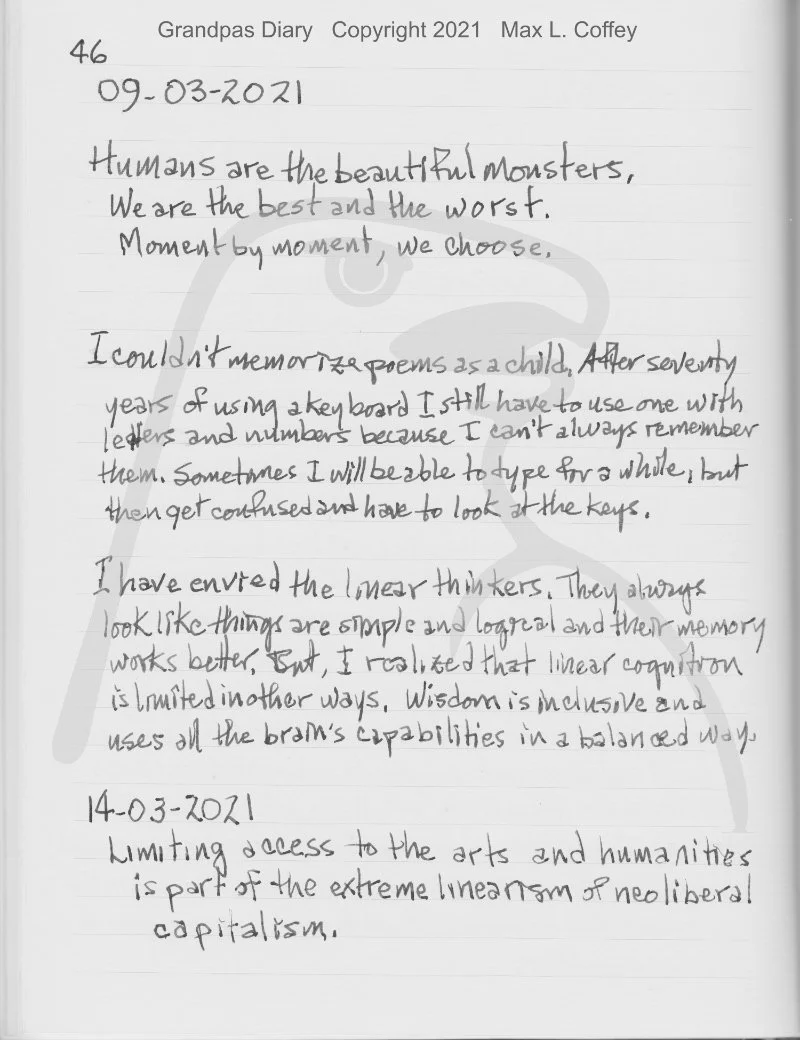 Grandpas Diary Copyright 2021 Max L. Coffey
46
09-03-2021
Humans are the beautiful monsters,
We are the best and the worst.
Moment by moment, we choose.
I couldn't memorize poems as a child. After seventy
years of using a keyboard I still have to use one with
letters and numbers because I can't always remember
them. Sometimes I will be able to type for a while, but
then get confused and have to look at the keys.
I have envied the linear thinkers. They always
look like things are simple and logical and their memory
works better. But, I realized that linear cognition
is limited in other ways. Wisdom is inclusive and
uses all the brain's capabilities in a balanced way.
14-03-2021
Limiting access to the arts and humanities
is part of the extreme linearism of neoliberal
capitalism.